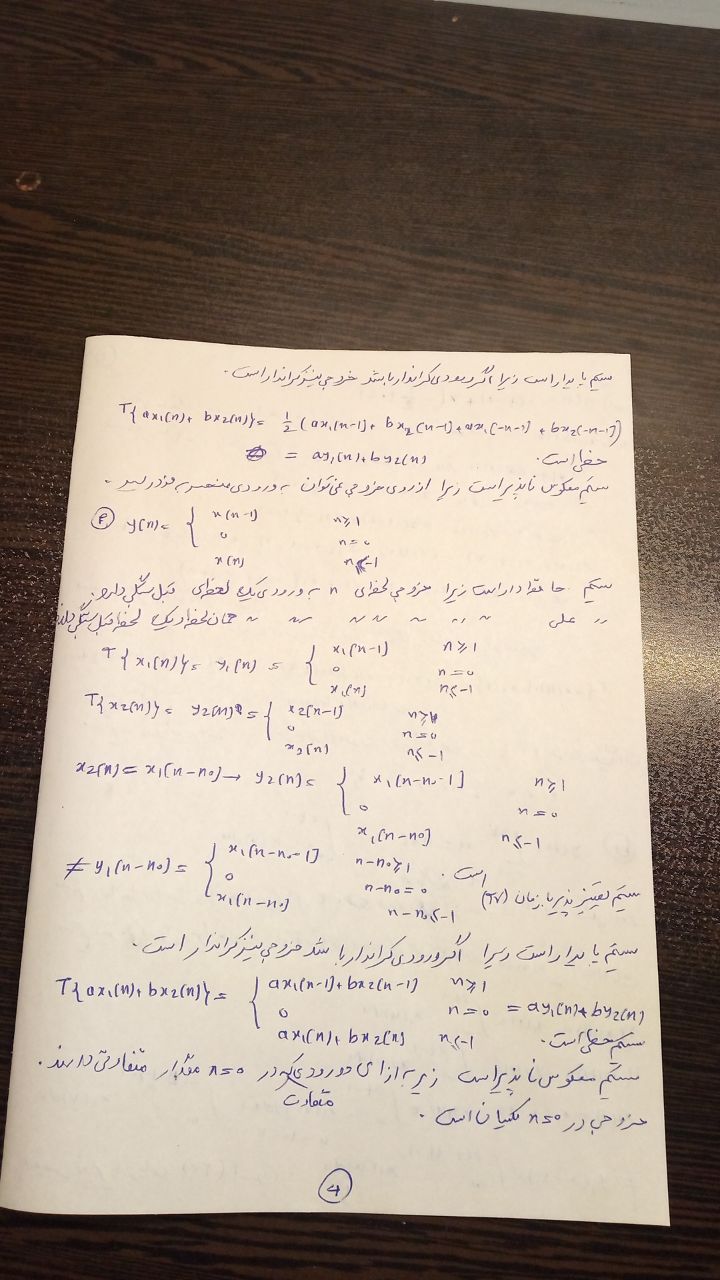 سیستم پایدار است زیرا اگر ورودی کراندار باشد خروجی نیز کراندار است.
T{ax1(n)+bx2(n)} = 1/2 (ax1(n-1)+bx2(n-1)+ax1(-n-1)+bx2(-n-1))
= ay1(n)+by2(n) خطی است.
سیستم معکوس ناپذیر است زیرا از روی خروجی نمی توان به ورودی منحصر به فرد رسید.
y(n) = { x(n-1) n≥1
0 n=0
x(n) n≤-1
سیستم حافظه دار است زیرا خروجی لحظه ای n به ورودی یک لحظه ای قبل بستگی دارد.
〃 علی 〃 〃 〃 〃 〃 〃 همان لحظه و یک لحظه قبل بستگی دارد
T{x1(n)} = y1(n) = { x1(n-1) n≥1
0 n=0
x1(n) n≤-1
T{x2(n)} = y2(n) = { x2(n-1) n≥1
0 n=0
x2(n) n≤-1
x2(n) = x1(n-n0) → y2(n) = { x1(n-n0-1) n≥1
0 n=0
x1(n-n0) n≤-1
≠ y1(n-n0) = { x1(n-n0-1) n-n0≥1
0 n-n0=0
x1(n-n0) n-n0≤-1
سیستم تغییر پذیر با زمان (TV) است.
سیستم پایدار است زیرا اگر ورودی کراندار باشد خروجی نیز کراندار است.
T{ax1(n)+bx2(n)} = { ax1(n-1)+bx2(n-1) n≥1
0 n=0 = ay1(n)+by2(n)
ax1(n)+bx2(n) n≤-1
سیستم خطی است.
سیستم معکوس ناپذیر است زیر به ازای دو ورودی متفاوت که در n=0 مقدار متفاوتی دارند.
خروجی در n=0 یکسان است.
4